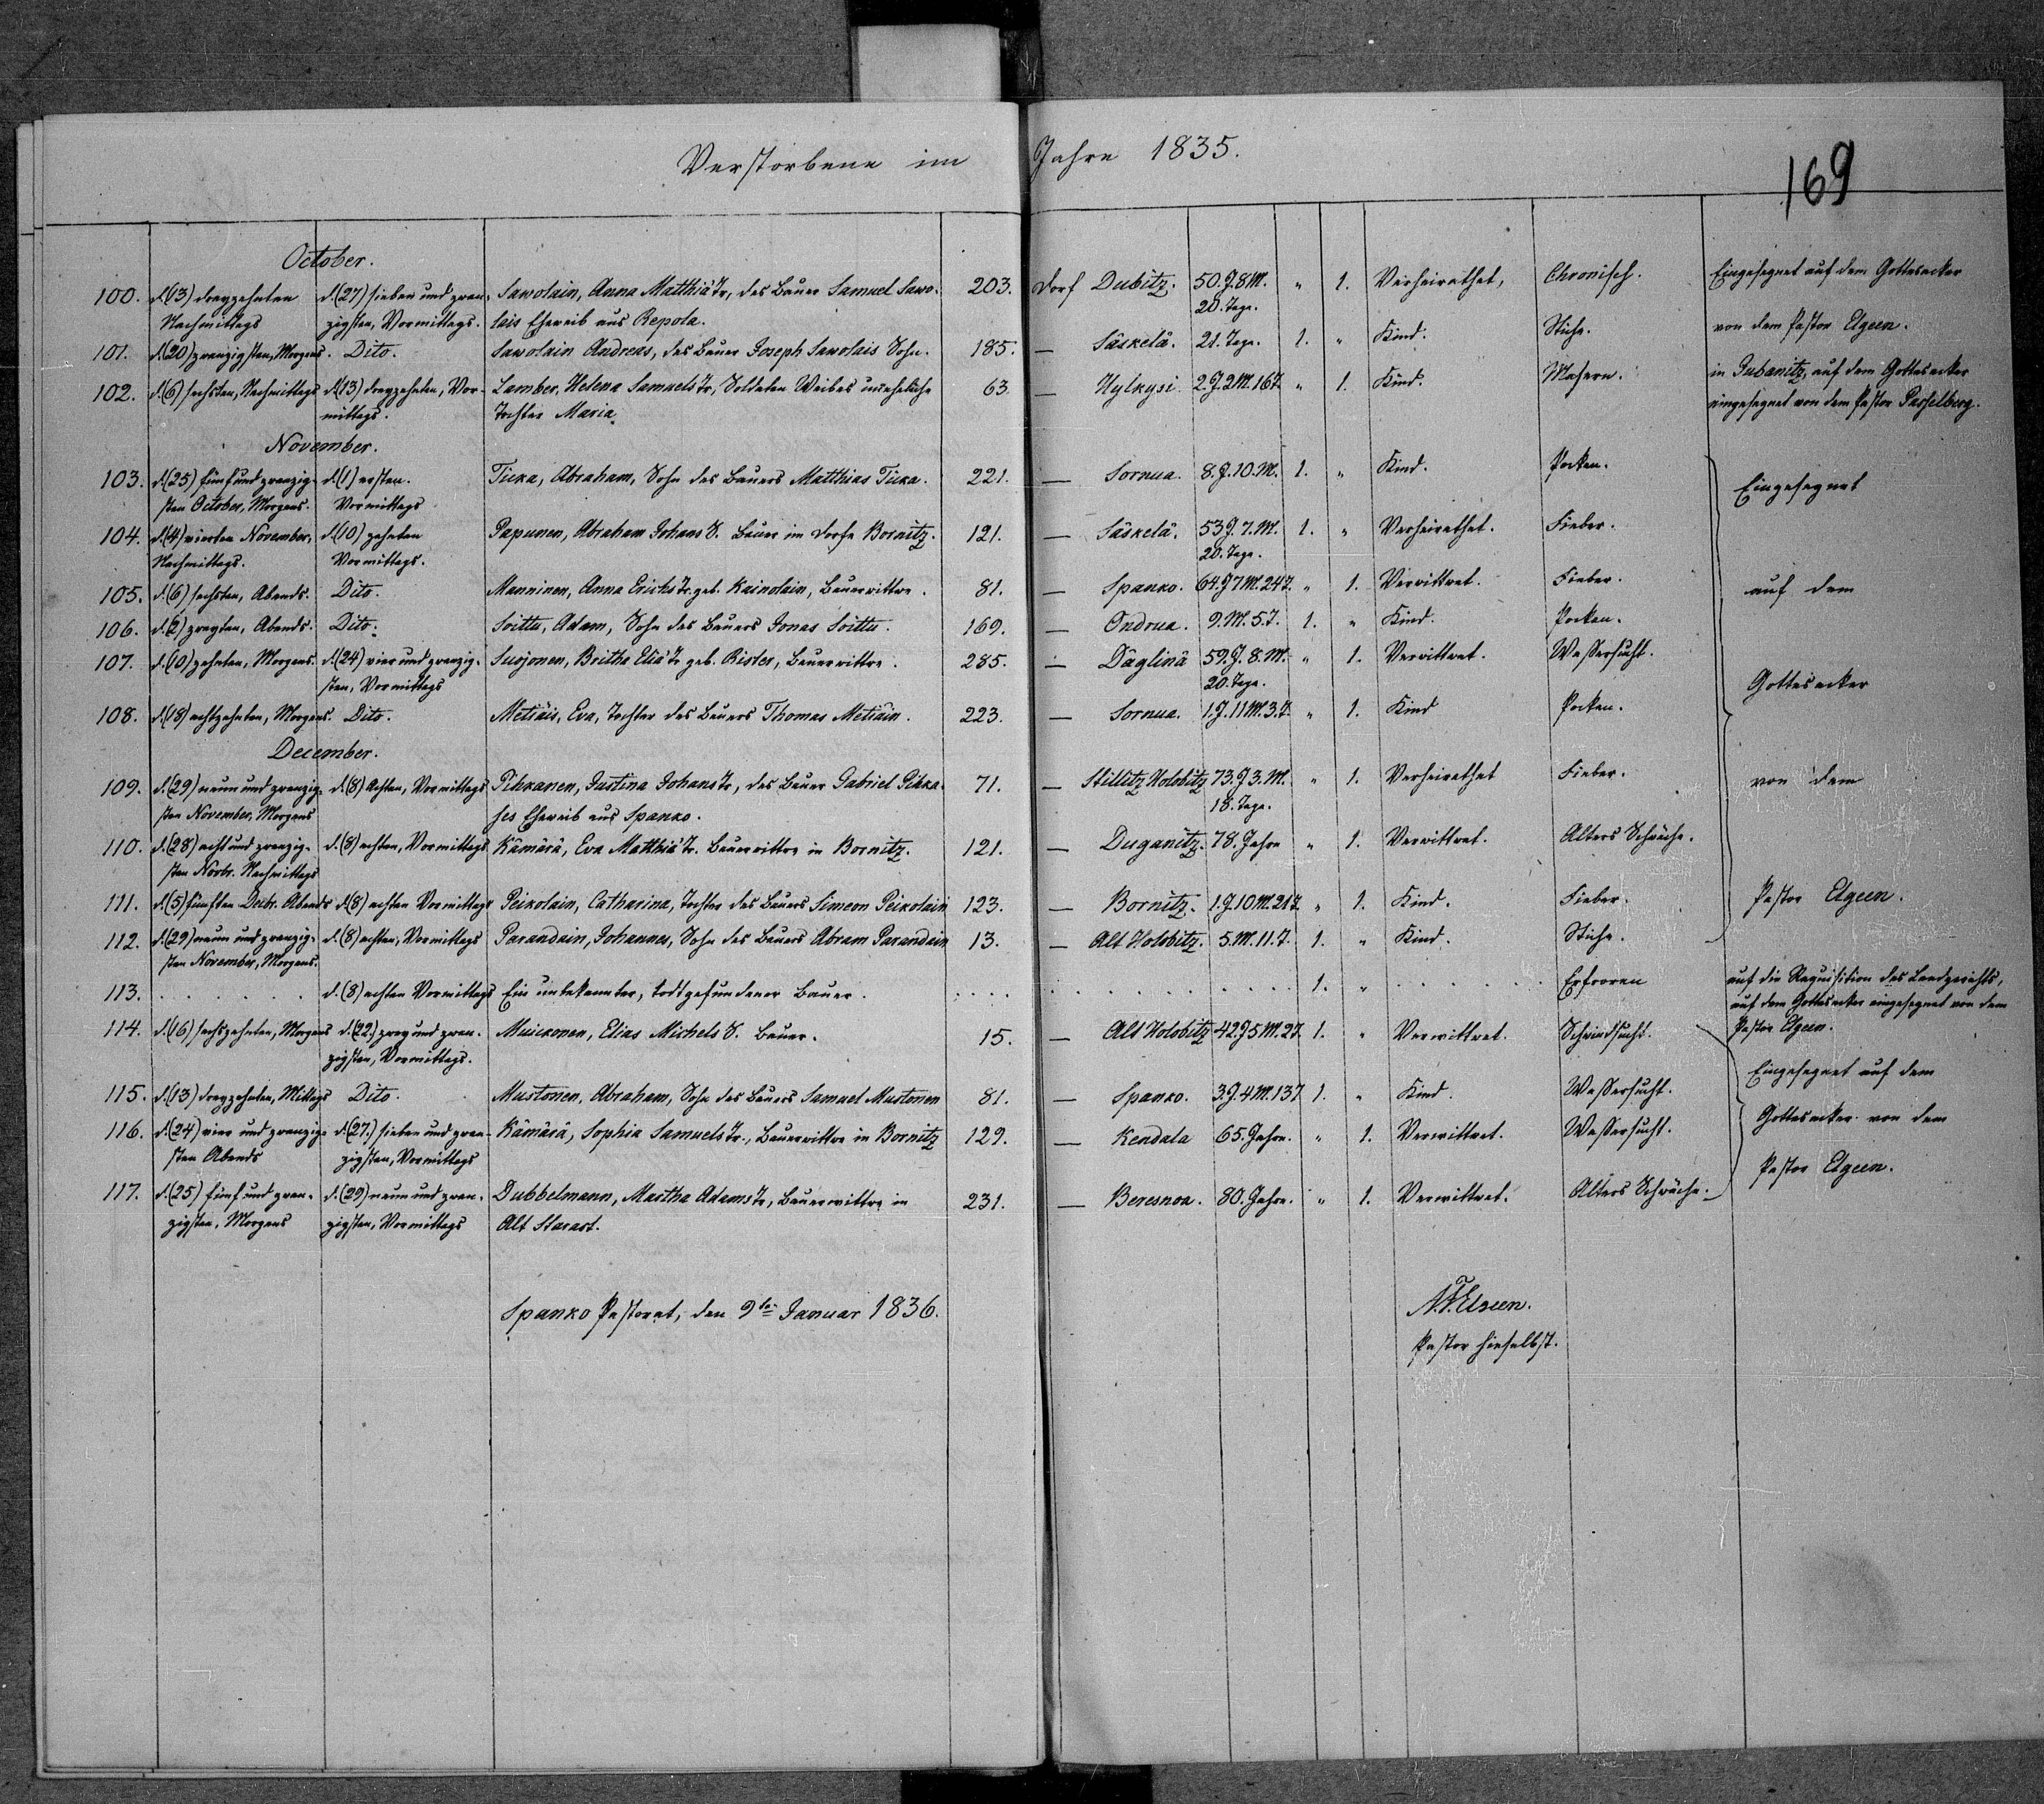 Verstorbene im Jahre 1835.
169
October.
100. d. (13) dreyzehnten d. (27) sieben und zwan- Sawolain, Anna Matthiä Tr, des Bauer Samuel Sawo- 203. Dorf Dubitz. 50. J. 8 M. " 1. Verheirathet, Chronisch. Eingesegnet auf dem Gottesacker
Nachmittags zigsten, Vormittags. lais Eheweib aus Repola. 20. Tage. von dem Pastor Elgeen.
101. d. (20) zwanzigsten, Morgens. Dito. Sawolain Andreas, des Bauer Joseph Sawolais Sohn. 185. — Säskelä. 21. Tage. 1. " Kind. Stiche.
102. d. (6) sechsten, Nachmittags d. (13) dreyzehnten, Vor- Lamber, Helena Samuels Tr, Soldaten Weibes uneheliche 63. — Hylkysi. 2 J. 2 M. 16 T. " 1. Kind. Masern. in Gubanitz, auf dem Gottesacker
mittags. Tochter Maria. eingesegnet von dem Pastor
November.
103. d. (25) fünf und zwanzig- d. (1) ersten. Tuka, Abraham, Sohn des Bauers Matthias Tuka. 221. — Sornua. 8. J. 10. M. 1. " Kind. Pocken. Eingesegnet
sten October, Morgens. Vormittags
104. d. (4) vierten November, d. (10) zehnten Papunen, Abraham Johans S. Bauer im Dorfe Bornitz. 121. — Säskelä. 53 J. 7. M. 1. " Verheirathet. Fieber.
Nachmittags. Vormittags. 20. Tage.
105. d. (6) sechsten, Abends. Dito. Manninen, Anna Erichs Tr. geb. Kainolain, Bauerwittwe. 81. — Spanko. 64. J 7 M. 24 T. " 1. Verwittwet. Fieber. auf dem
106. d. (2) zweyten, Abends. Dito. Soittu, Adam, Sohn des Bauers Jonas Soittu. 169. — Ondrua. 9. M. 5. T. 1. " Kind. Pocken.
107. d. (10) zehnten, Morgens. d. (24) vier und zwanzig- Susjonen, Britha Eliä Tr geb. Rister, Bauerwittwe. 285. — Däglinä 59. J. 8. M. " 1. Verwittwet. Waßersucht.
sten, Vormittags 20. Tage. Gottesacker
108. d. (18) achtzehnten, Morgens. Dito. Metiäis, Eva, Tochter des Bauers Thomas Metiäin. 223. — Sornua. 1. J. 11 M. 3. T. " 1. Kind Pocken.
December.
109. d. (29) neun und zwanzig- d. (8) Achten, Vormittags Pihkanen, Justina Johans Tr, des Bauer Gabriel Pihka- 71. — Stillitz Holobitz 73. J 3. M. " 1. Verheirathet Fieber. von dem
sten November, Morgens ses Eheweib aus Spanko. 18. Tage.
110. d. (28) acht und zwanzig- d. (8) achten, Vormittags Kämärä, Eva Matthiä Tr. Bauerwittwe in Bornitz. 121. — Duganitz. 78. Jahre " 1. Verwittwet. Alters Schwäche.
sten Novbr. Nachmittags
111. d. (5) fünften Decbr. Abends d. (8) achten Vormittags Peikolain, Catharina, Tochter des Bauers Simeon Peikolain 123. — Bornitz. 1. J. 10 M. 21 T. " 1. Kind. Fieber. Pastor Elgeen.
112. d. (29) neun und zwanzig- d. (8) achten, Vormittags Parandain, Johannes, Sohn des Bauers Abram Parandain 13. — Alt Holobitz. 5. M. 11. T. 1. " Kind. Stiche.
sten November, Morgens.
113. . . . . . . d. (8) achten Vormittags Ein unbekannter, todtgefundener Bauer. . . . . 1. " . . . . . Erfroren auf die Requisition des Landgerichts,
auf dem Gottesacker eingesegnet von dem
114. d. (16) sechszehnten, Morgens d. (22.) zwey und zwan- Muickonen, Elias Michels S. Bauer. 15. — Alt Holobitz 42. J 5 M. 2 T. 1. " Verwittwet. Schwindsucht. Pastor Elgeen.
zigsten, Vormittags.
115. d. (13) dreyzehnten, Mittags Dito. Mustonen, Abraham, Sohn des Bauers Samuel Mustonen 81. — Spanko. 3. J. 4 M. 13 T 1. " Kind. Waßersucht. Eingesegnet auf dem
116. d. (24) vier und zwanzig- d. (27.) sieben und zwan- Kämärä, Sophia Samuels Tr., Bauerwittwe in Bornitz 129. — Kendala 65. Jahre. " 1. Verwittwet. Waßersucht. Gottesacker von dem
sten Abends zigsten, Vormittags
117. d. (25) fünf und zwan- d. (29) neun und zwan- Dubbelmann, Martha Adams Tr, Bauerwittwe in 231. — Beresnoa. 80. Jahre. " 1. Verwittwet. Alters Schwäche. Pastor Elgeen.
zigsten, Morgens zigsten, Vormittags Alt Starast.
Spanko Pastorat, den 9ten Januar 1836.
Elgeen.
Pastor hieselbst.